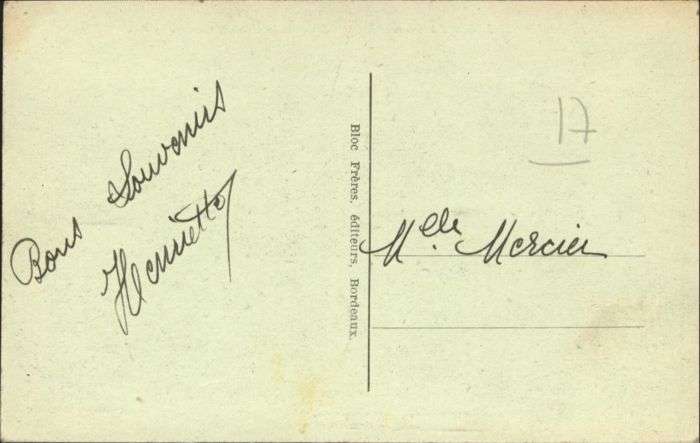 Bons Souvenirs
Henriette
Bloc Frères, éditeurs, Bordeaux.
17
Melle Mercier